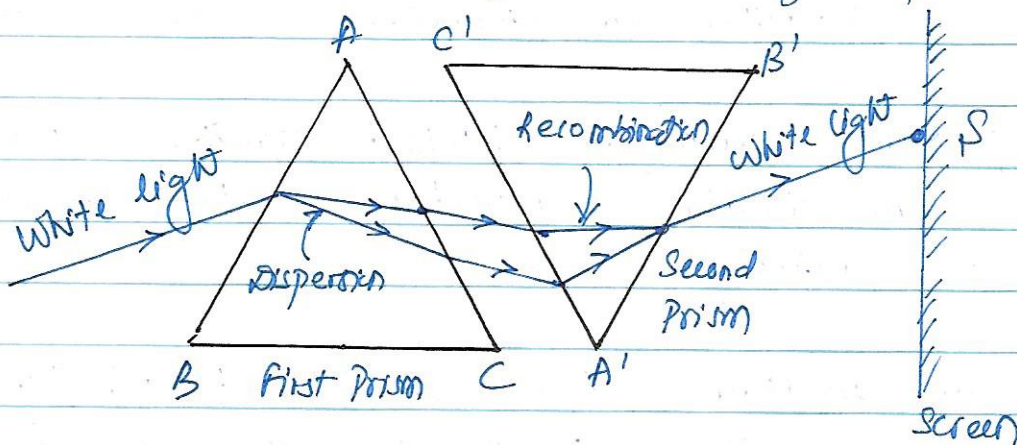 A C' B'
Recombination
White light
S
White light
Dispersion
Second
Prism
B First Prism C A'
Screen